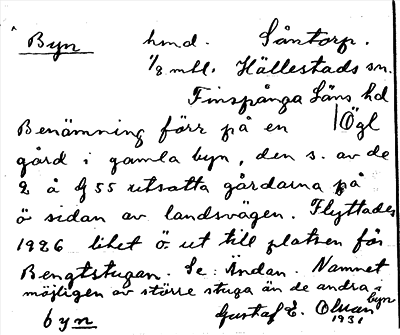 Byn hmd. Såntorp.
1/8 mtl. Hällestads sn.
Finspånga Läns hd
Benämning förr på en Ögl
gård i gamla byn, den s. av de
2 å G 55 utsatta gårdarna på
ö sidan av landsvägen. Flyttades
1926 litet ö ut till platsen för
Bengtstugan. Se: Ändan. Namnet
möjligen av större stuga än de andra i byn
Gustaf E. Olsson
1931
byn